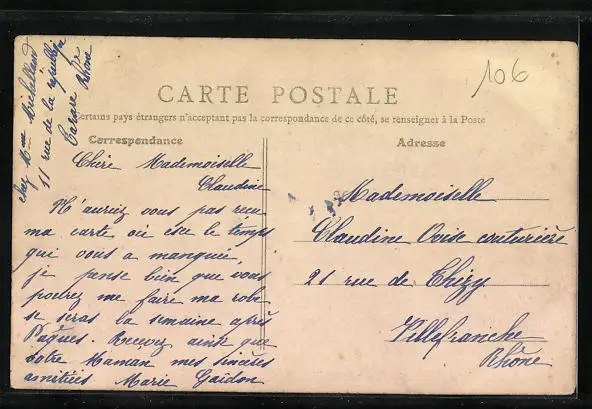 106
chez Mme Michelland
11 rue de la république
Tarare Rhône
CARTE POSTALE
Certains pays étrangers n'acceptent pas la correspondance de ce côté, se renseigner à la Poste
Correspondance
Adresse
Chère Mademoiselle
Claudine
N'auriez vous pas recu
ma carte, où esce le temps
qui vous a manquée,
je pense bien que vous
pourez me faire ma robe
se seras la semaine après
Pâques. Recevez ainsi que
votre Maman mes sincères
amitiées Marie Gaidon
Mademoiselle
Claudine Ovise couturière
21 rue de Thizy
Villefranche
Rhône